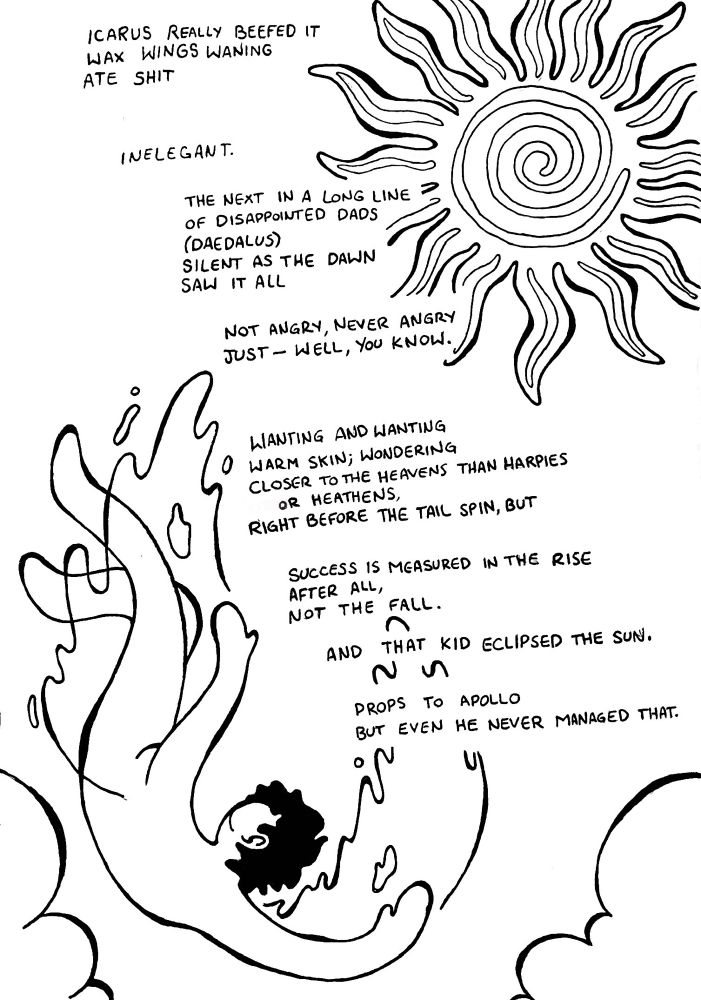 ICARUS REALLY BEEFED IT
WAX WINGS WANING
ATE SHIT
INELEGANT.
THE NEXT IN A LONG LINE
OF DISAPPOINTED DADS
(DAEDALUS)
SILENT AS THE DAWN
SAW IT ALL
NOT ANGRY, NEVER ANGRY
JUST — WELL, YOU KNOW.
WANTING AND WANTING
WARM SKIN; WONDERING
CLOSER TO THE HEAVENS THAN HARPIES
OR HEATHENS,
RIGHT BEFORE THE TAIL SPIN, BUT
SUCCESS IS MEASURED IN THE RISE
AFTER ALL,
NOT THE FALL.
AND THAT KID ECLIPSED THE SUN.
PROPS TO APOLLO
BUT EVEN HE NEVER MANAGED THAT.